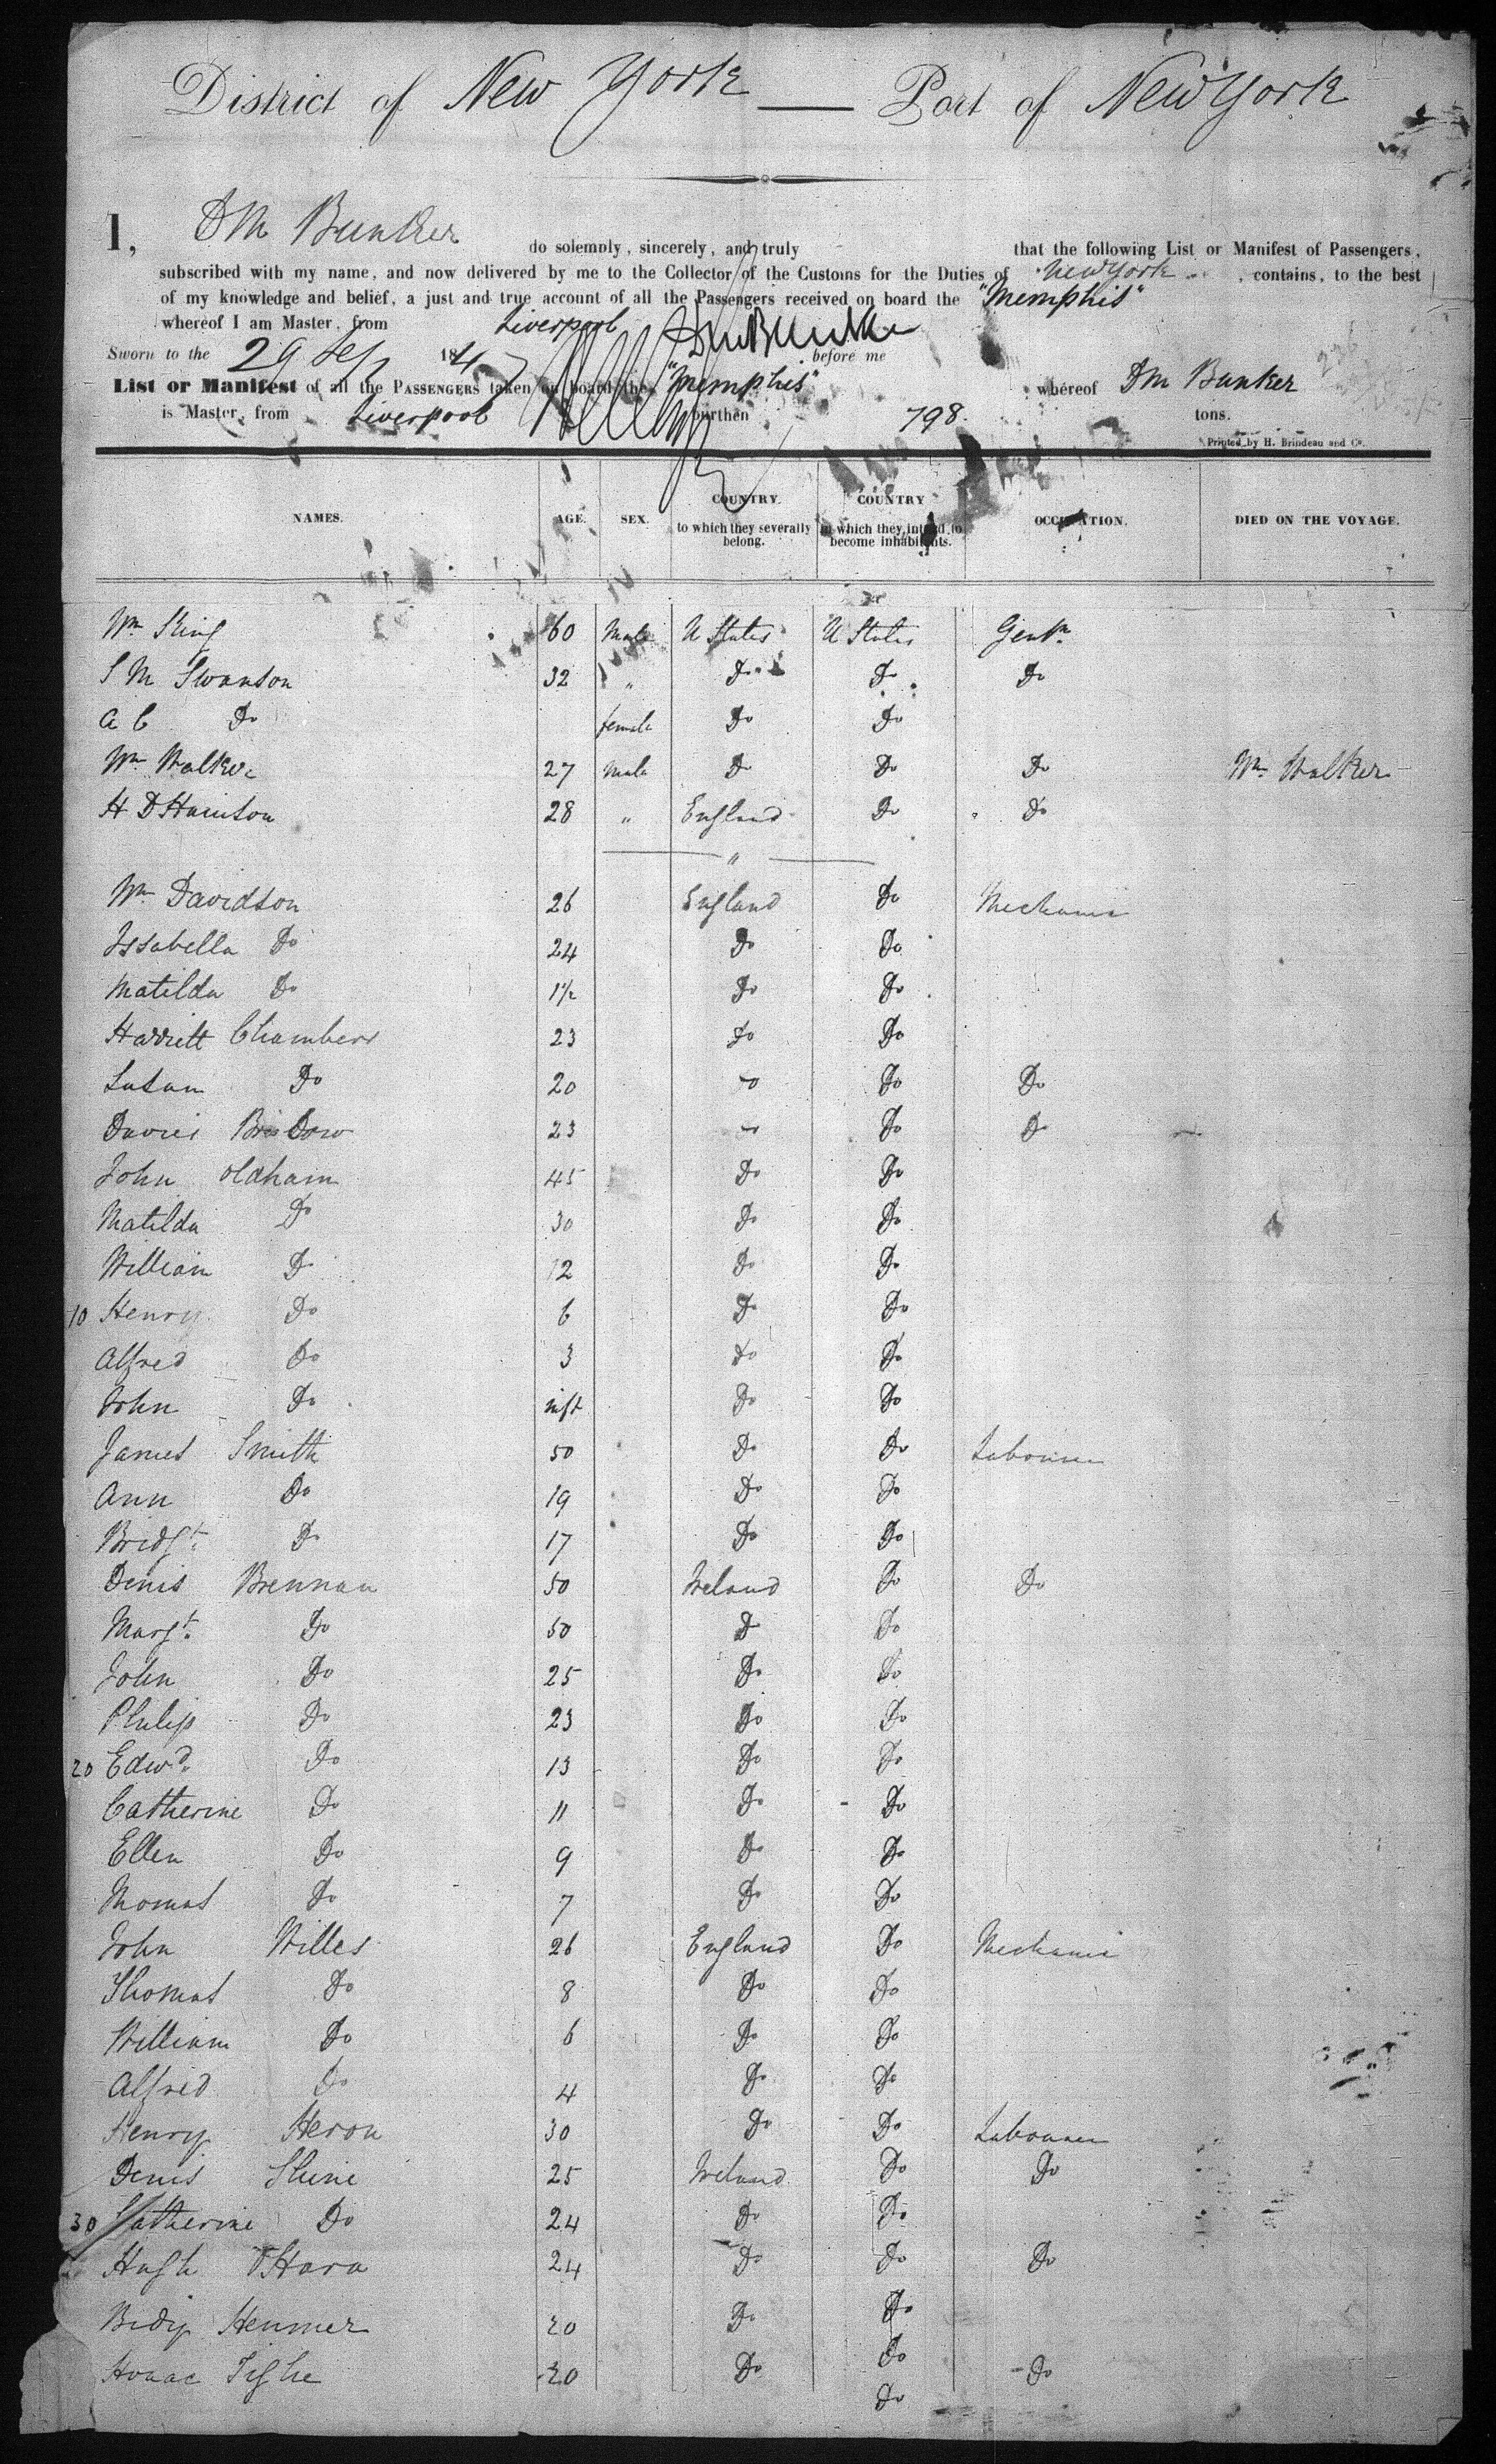 District of New York — Port of New York
I, D M Bunker do solemnly, sincerely, and truly that the following List or Manifest of Passengers,
subscribed with my name, and now delivered by me to the Collector of the Customs for the Duties of New York, contains, to the best
of my knowledge and belief, a just and true account of all the Passengers received on board the "Memphis"
whereof I am Master, from Liverpool D M Bunker
Sworn to the 29 Sep 1847 before me
List or Manifest of all the PASSENGERS taken on board the "Memphis" whereof D M Bunker
is Master, from Liverpool burthen 798 tons.
Printed by H. Brindeau and Co.
NAMES. AGE. SEX. COUNTRY. to which they severally belong. COUNTRY in which they intend to become inhabitants. OCCUPATION. DIED ON THE VOYAGE.
Wm King 60 Male U States U States Gentn
S M Swanson 32 " Do Do Do
A C Do female Do Do
Wm Walker 27 Male Do Do Do Wm Walker
H D 28 " England Do Do
"
Wm Davidson 26 England Do Mechanic
Issabella Do 24 Do Do
Matilda Do 1½ Do Do
Harriett Chambers 23 Do Do
Susan Do 20 Do Do Do
23 Do Do
John Oldham 45 Do Do
Matilda Do 30 Do Do
William Do 12 Do Do
10 Henry Do 6 Do Do
Alfred Do 3 Do Do
John Do inft Do Do
James Smith 50 Do Do Labourer
Ann Do 19 Do Do
Bridgt. Do 17 Do Do
Denis Brennan 50 Ireland Do Do
Margt. Do 50 Do Do
John Do 25 Do Do
Philip Do 23 Do Do
20 Edwd. Do 13 Do Do
Catherine Do 11 Do Do
Ellen Do 9 Do Do
Thomas Do 7 Do Do
John Willes 26 England Do Mechanic
Thomas Do 8 Do Do
William Do 6 Do Do
Alfred Do 4 Do Do
Henry Heron 30 Do Do Labourer
Denis Shine 25 Ireland Do Do
30 Catherine Do 24 Do Do
Hugh OHara 24 Do Do Do
Bidy Henmer 20 Do Do
Tighe 20 Do Do Do
Do